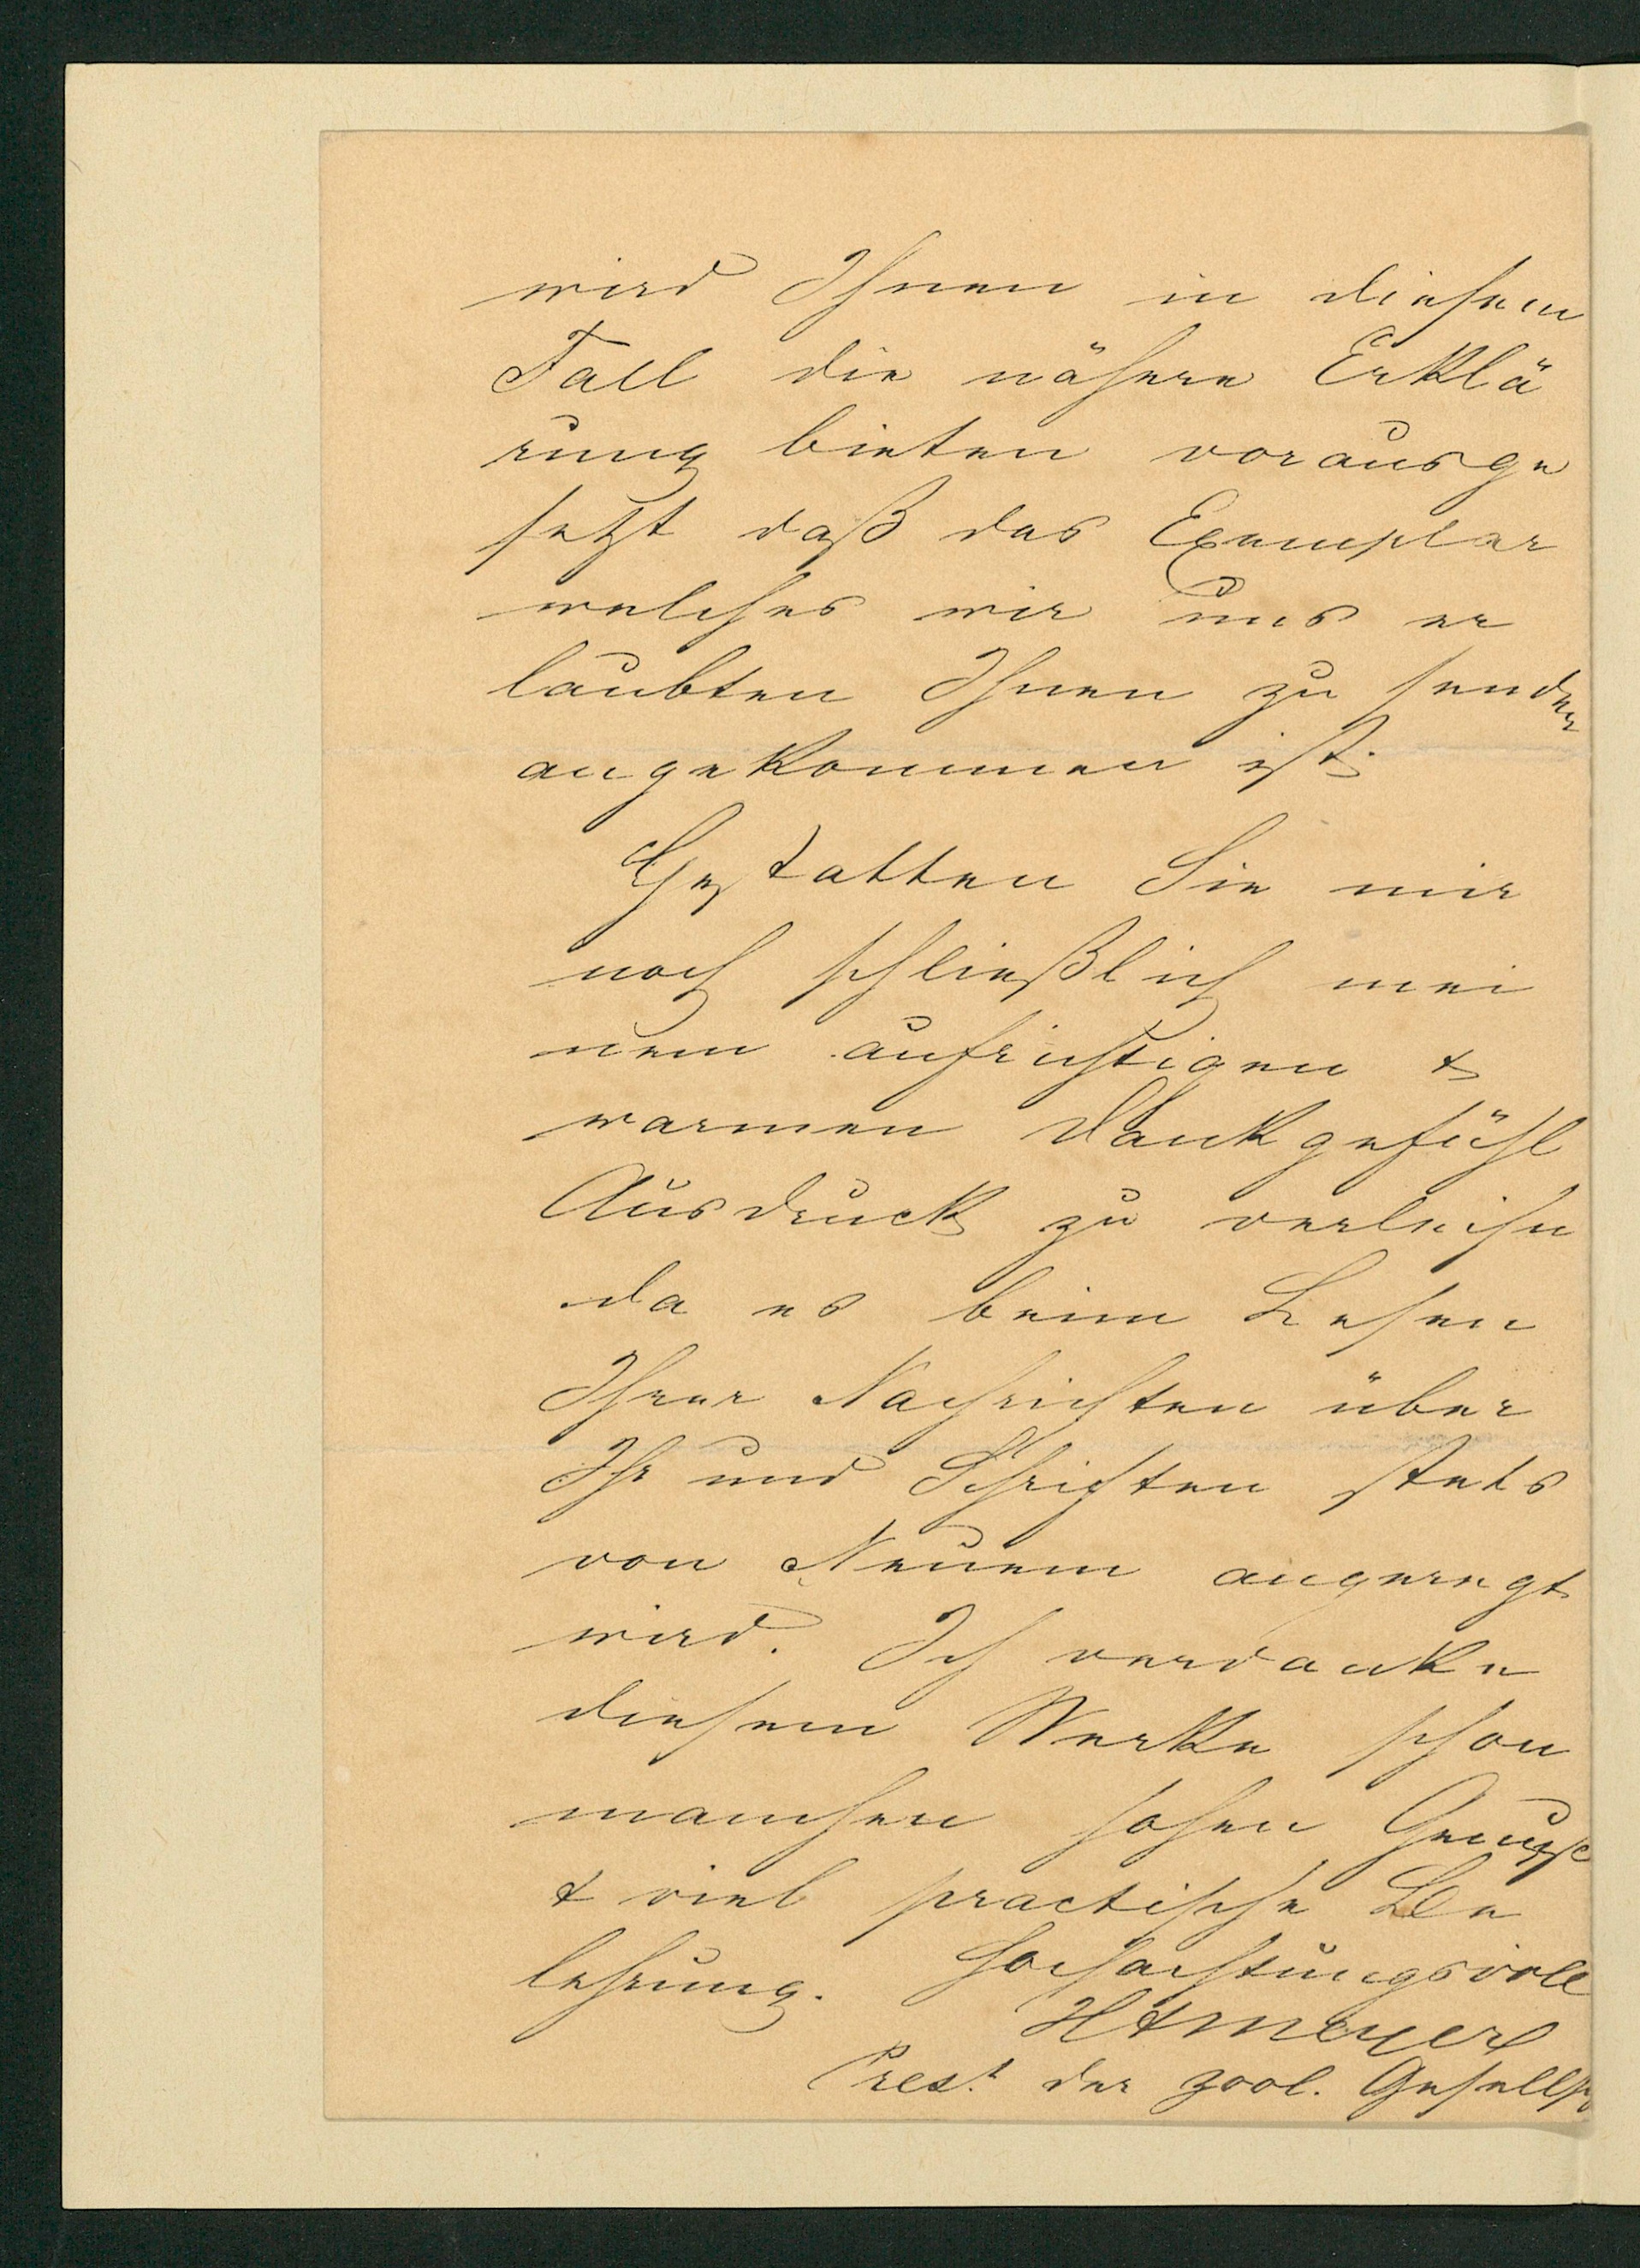 wird Ihnen in diesem
Fall die nähere Erklä
rung bieten vorausge
setzt daß das Exemplar
welches wir uns er
laubten Ihnen zu senden
angekommen ist.
Gestatten Sie mir
noch schließlich mei
nem aufrichtigen &
warmen Dankgefühl
Ausdruck zu verleihn
da es beim Lesen
Ihrer Nachrichten über
Ihr und Schriften stets
von Neuem angeregt
wird. Ich verdanke
diesem Werke schon
manchen hohen Genuß
& viel practische Be
lehrung. Hochachtungsvoll
Pres.t der zool. Gesellsch